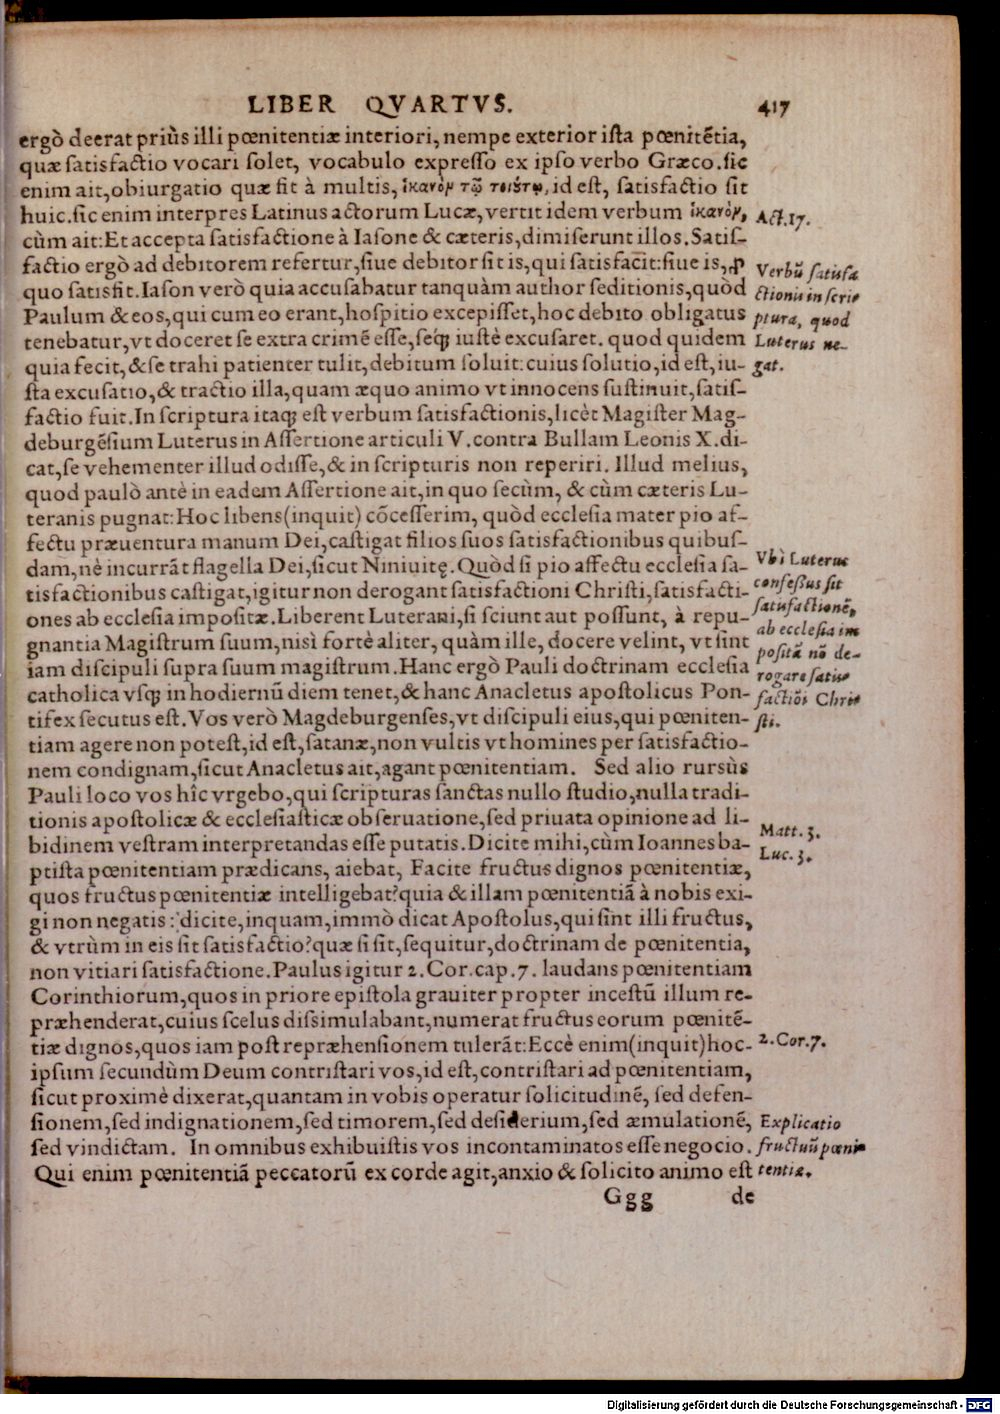 LIBER QVARTVS. 417
ergò deerat priùs illi pœnitentiæ interiori, nempe exterior iſta pœnitētia,
quæ ſatisfactio vocari ſolet, vocabulo expreſſo ex ipſo verbo Græco. ſic
enim ait, obiurgatio quæ fit à multis, ἱκανὸν τῷ τοιούτῳ, id eſt, ſatisfactio ſit
huic. ſic enim interpres Latinus actorum Lucæ, vertit idem verbum ἱκανὸν,
Act. 17.
cùm ait: Et accepta ſatisfactione à Iaſone & cæteris, dimiſerunt illos. Satiſ-
factio ergò ad debitorem refertur, ſiue debitor ſit is, qui ſatisfacit: ſiue is, ꝓ
quo ſatisfit. Iaſon verò quia accuſabatur tanquàm author ſeditionis, quòd
Paulum & eos, qui cum eo erant, hoſpitio excepiſſet, hoc debito obligatus
tenebatur, vt doceret ſe extra crimē eſſe, ſeq́; iuſtè excuſaret. quod quidem
Verbū ſatisfa
ctionis in ſcri
ptura, quod
Luterus ne-
gat.
quia fecit, & ſe trahi patienter tulit, debitum ſoluit: cuius ſolutio, id eſt, iu-
ſta excuſatio, & tractio illa, quam æquo animo vt innocens ſuſtinuit, ſatiſ-
factio fuit. In ſcriptura itaq; eſt verbum ſatisfactionis, licèt Magiſter Mag-
deburgēſium Luterus in Aſſertione articuli V. contra Bullam Leonis X. di-
cat, ſe vehementer illud odiſſe, & in ſcripturis non reperiri. Illud melius,
quod paulò antè in eadem Aſſertione ait, in quo ſecùm, & cùm cæteris Lu-
teranis pugnat: Hoc libens (inquit) cōceſſerim, quòd eccleſia mater pio af-
fectu præuentura manum Dei, caſtigat filios ſuos ſatisfactionibus quibuſ-
dam, nè incurrāt flagella Dei, ſicut Niniuitę. Quòd ſi pio affectu eccleſia ſa-
tisfactionibus caſtigat, igitur non derogant ſatisfactioni Chriſti, ſatisfacti-
ones ab eccleſia impoſitæ. Liberent Luterani, ſi ſciunt aut poſſunt, à repu-
gnantia Magiſtrum ſuum, niſi fortè aliter, quàm ille, docere velint, vt ſint
iam diſcipuli ſupra ſuum magiſtrum. Hanc ergò Pauli doctrinam eccleſia
Vbi Luterus
confeſſus ſit
ſatisfactionē,
ab eccleſia im
poſitā nō de-
rogare ſatis
factiōi Chri
ſti.
catholica vſq; in hodiernū diem tenet, & hanc Anacletus apoſtolicus Pon-
tifex ſecutus eſt. Vos verò Magdeburgenſes, vt diſcipuli eius, qui pœniten-
tiam agere non poteſt, id eſt, ſatanæ, non vultis vt homines per ſatisfactio-
nem condignam, ſicut Anacletus ait, agant pœnitentiam. Sed alio rursùs
Pauli loco vos hîc vrgebo, qui ſcripturas ſanctas nullo ſtudio, nulla tradi-
tionis apoſtolicæ & eccleſiaſticæ obſeruatione, ſed priuata opinione ad li-
bidinem veſtram interpretandas eſſe putatis. Dicite mihi, cùm Ioannes ba-
ptiſta pœnitentiam prædicans, aiebat, Facite fructus dignos pœnitentiæ,
Matt. 3.
Luc. 3.
quos fructus pœnitentiæ intelligebat? quia & illam pœnitentiā à nobis exi-
gi non negatis: dicite, inquam, immò dicat Apoſtolus, qui ſint illi fructus,
& vtrùm in eis ſit ſatisfactio? quæ ſi ſit, ſequitur, doctrinam de pœnitentia,
non vitiari ſatisfactione. Paulus igitur 2. Cor. cap. 7. laudans pœnitentiam
Corinthiorum, quos in priore epiſtola grauiter propter inceſtū illum re-
præhenderat, cuius ſcelus diſsimulabant, numerat fructus eorum pœnitē-
tiæ dignos, quos iam poſt repræhenſionem tulerāt: Eccè enim (inquit) hoc-
2. Cor. 7.
ipſum ſecundùm Deum contriſtari vos, id eſt, contriſtari ad pœnitentiam,
ſicut proximè dixerat, quantam in vobis operatur ſolicitudinē, ſed defen-
ſionem, ſed indignationem, ſed timorem, ſed deſiderium, ſed æmulationē,
ſed vindictam. In omnibus exhibuiſtis vos incontaminatos eſſe negocio.
Qui enim pœnitentiā peccatorū ex corde agit, anxio & ſolicito animo eſt
Explicatio
fructuū pœni
tentiæ.
Ggg de
Digitalisierung gefördert durch die Deutsche Forschungsgemeinschaft - DFG